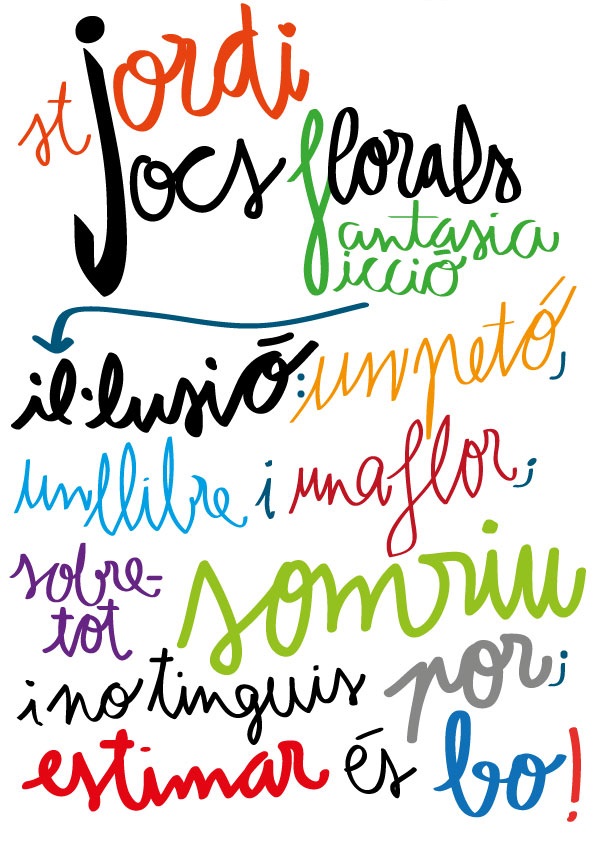 st jordi
jocs florals
fantasia
ficció
il·lusió: un petó,
un llibre i una flor;
sobre-
tot somriu
i no tinguis por;
estimar és bo!